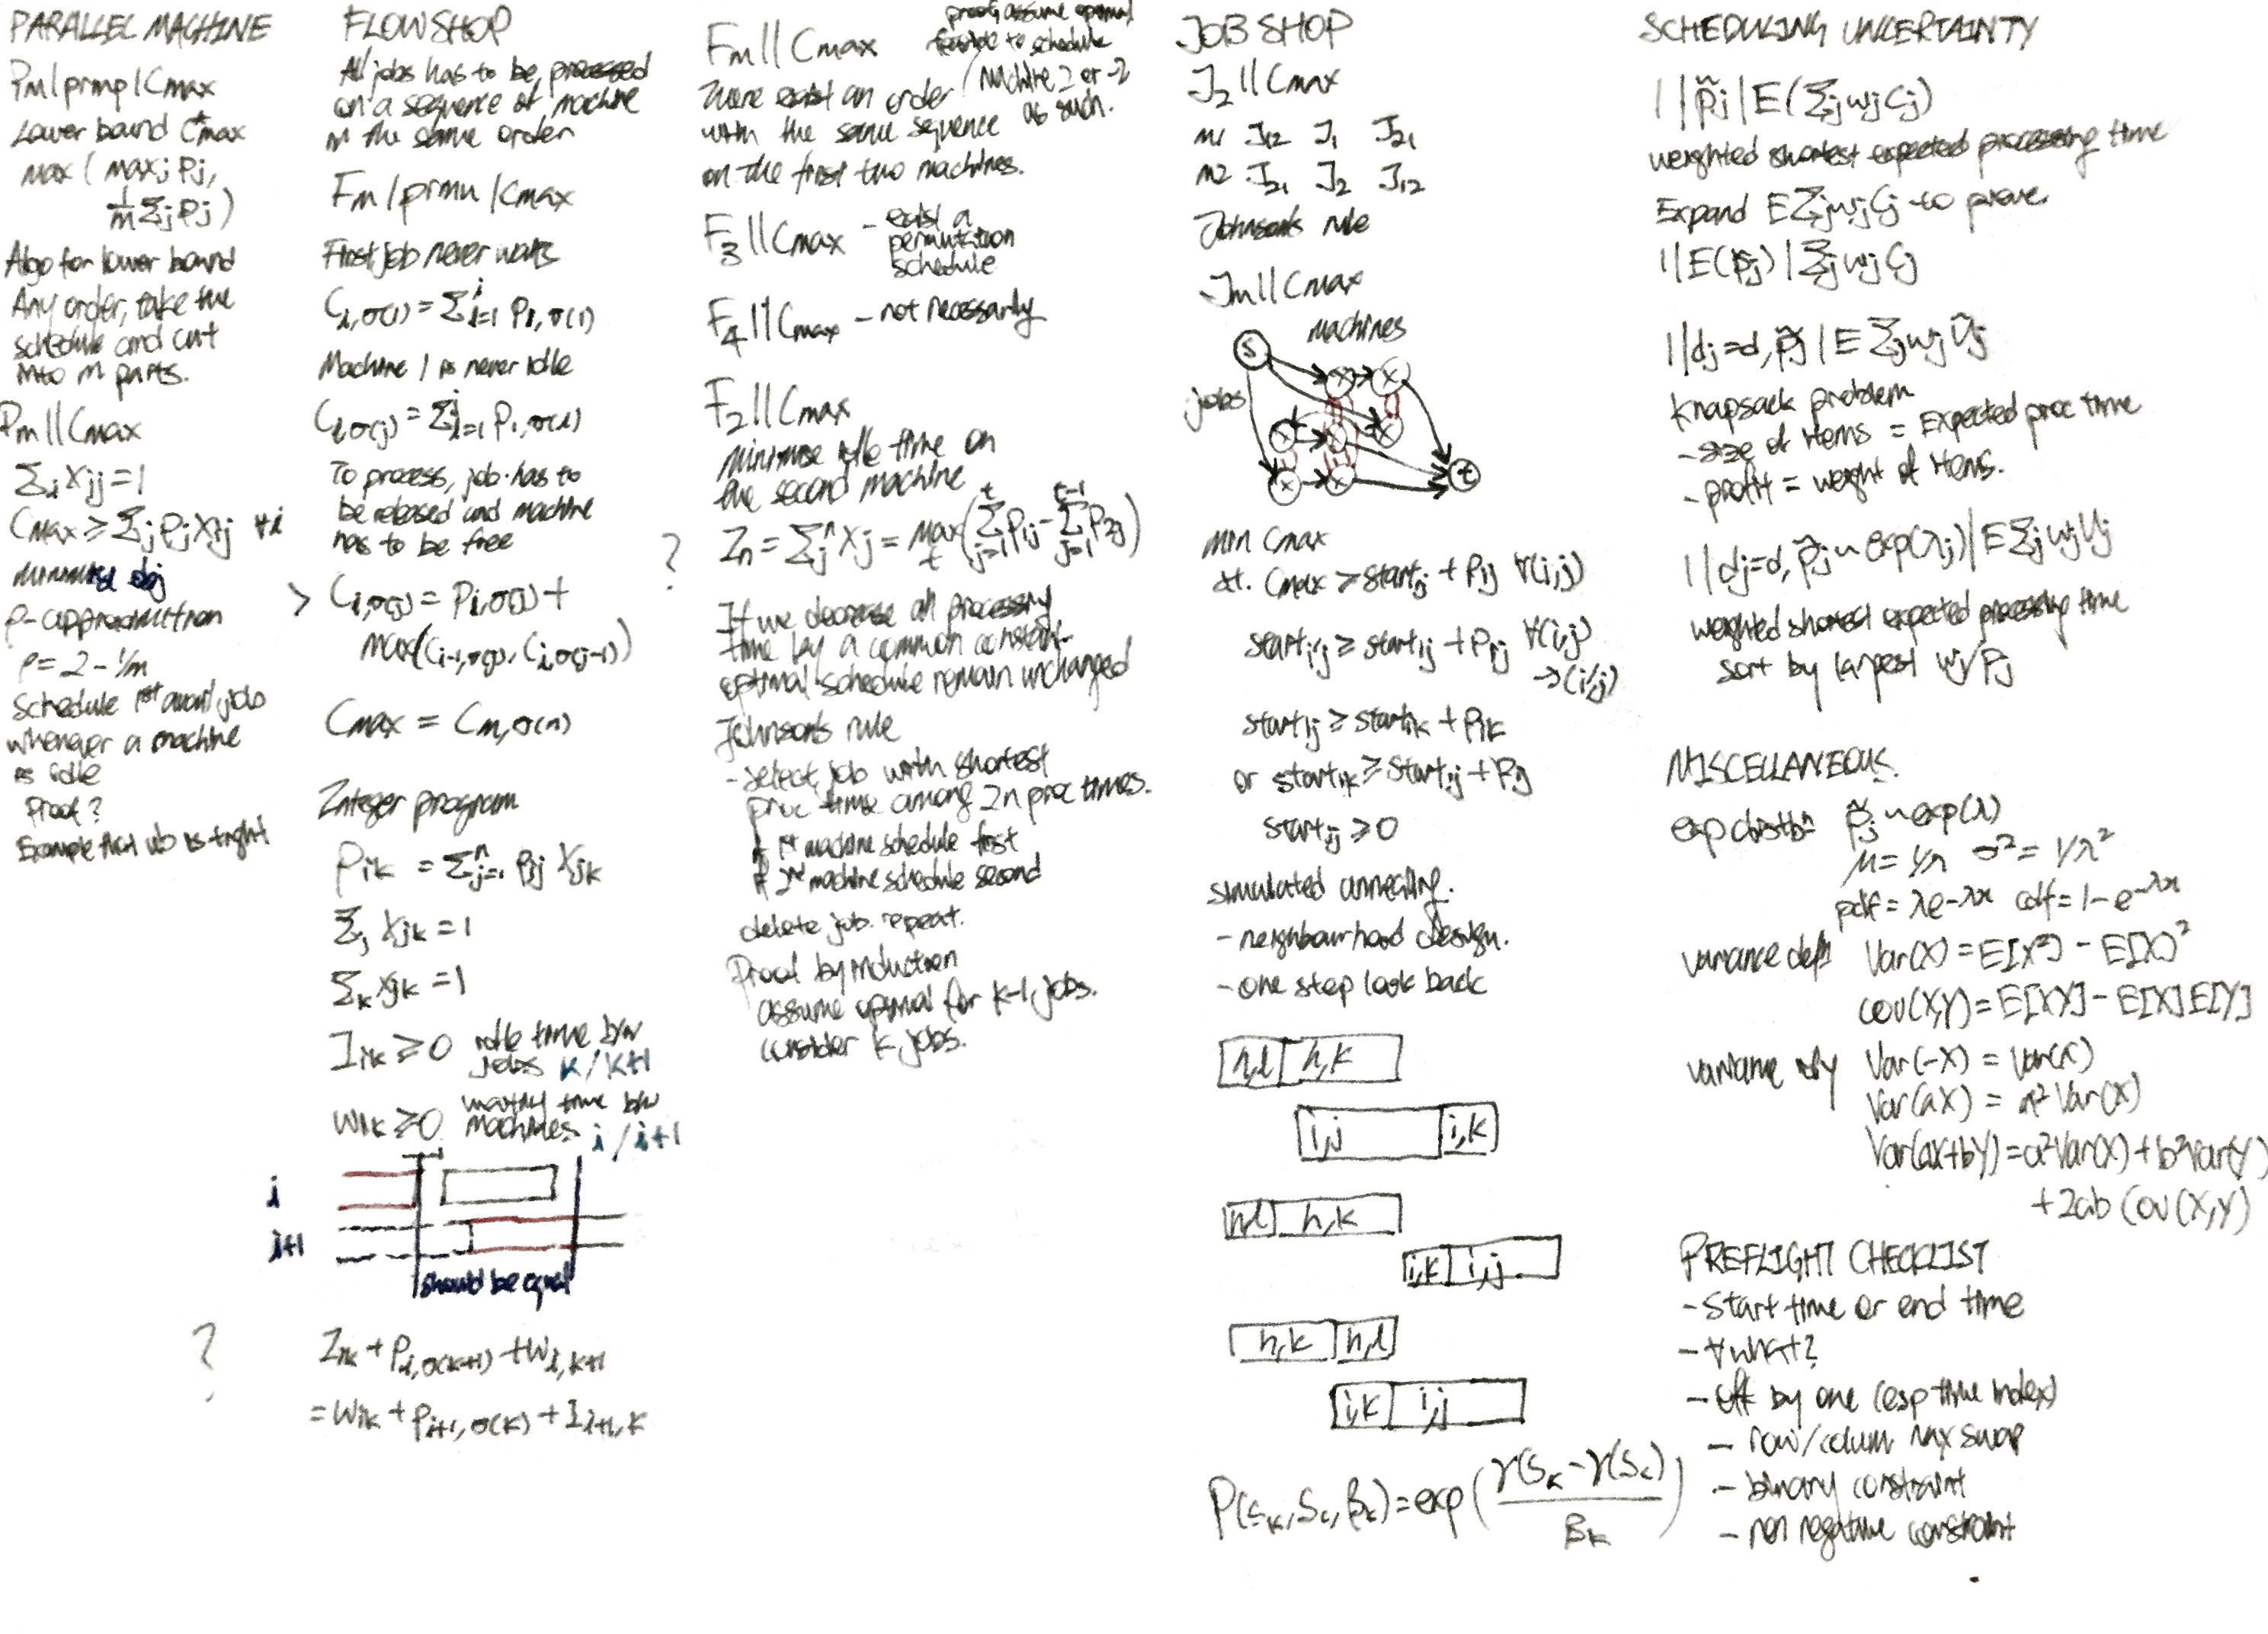 PARALLEL MACHINE
Pm | prmp | Cmax
Lower bound C*max
max ( maxj pj,
1/m Σj pj )
Algo for lower bound
Any order, take the
schedule and cut
into m parts.
Pm || Cmax
Σi xij = 1
Cmax ≥ Σj pj xij ∀i
minimise obj
ρ-approximation
ρ = 2 - 1/m
Schedule 1st avail job
whenever a machine
is idle
Proof?
Example that ub is tight
FLOW SHOP
All jobs has to be processed
on a sequence of machine
in the same order
Fm | prmu | Cmax
First job never waits
Ci,σ(1) = Σ^i l=1 pl,σ(1)
Machine 1 is never idle
C1,σ(j) = Σ^j l=1 p1,σ(l)
To process, job has to
be released and machine
has to be free
> Ci,σ(j) = pi,σ(j) +
max(Ci-1,σ(j), Ci,σ(j-1))
Cmax = Cm,σ(n)
Integer program
pik = Σ^n j=1 pij xjk
Σj xjk = 1
Σk xjk = 1
Iik ≥ 0 idle time b/w
jobs k / k+1
wik ≥ 0 waiting time b/w
machines i / i+1
i
i+1
should be equal
? Iik + pi,σ(k+1) + wi,k+1
= wik + pi+1,σ(k) + Ii+1,k
Fm || Cmax
proof: assume optimal
feasible to schedule
machine 2 or -2
as such.
There exist an order
with the same sequence
on the first two machines.
F3 || Cmax - exist a
permutation
schedule
F4 || Cmax - not necessarily
F2 || Cmax
minimise idle time on
the second machine
? In = Σ^n j Xj = max t (Σ^t j=1 p1j - Σ^t-1 j=1 p2j)
If we decrease all processing
time by a common constant
optimal schedule remain unchanged
Johnson's rule
- select job with shortest
proc time among 2n proc times.
if 1st machine schedule first
if 2nd machine schedule second
delete job. repeat.
Proof by induction
assume optimal for k-1 jobs.
consider k jobs.
JOB SHOP
J2 || Cmax
m1 J12 J1 J21
m2 J21 J2 J12
Johnson's rule
Jm || Cmax
machines
jobs
s
x x
x x x
x x
t
min Cmax
st. Cmax ≥ startij + pij ∀(i,j)
starti'j ≥ startij + pij ∀(i,j)
→(i',j)
startij ≥ startik + pik
or startik ≥ startij + pij
startij ≥ 0
simulated annealing.
- neighbourhood design.
- one step look back
h,l h,k
i,j i,k
h,l h,k
i,k i,j
h,k h,l
i,k i,j
P(Sk, Sc, βk) = exp ( γ(Sk - γ(Sc) / βk )
SCHEDULING UNCERTAINTY
1 | p̃j | E(Σj wj Cj)
weighted shortest expected processing time
Expand E Σj wj Cj to prove
1 | E(p̃j) | Σj wj Cj
1 | dj = d, p̃j | E Σj wj Uj
knapsack problem
- size of items = Expected proc time
- profit = weight of items.
1 | dj = d, p̃j ~ exp(λj) | E Σj wj Uj
weighted shortest expected processing time
sort by largest wj/pj
MISCELLANEOUS
exp distbn p̃j ~ exp(λ)
μ = 1/λ σ² = 1/λ²
pdf = λe-λx cdf = 1 - e^-λx
variance defn Var(X) = E[X²] - E[X]²
cov(X,Y) = E[XY] - E[X]E[Y]
variance Var(-X) = Var(X)
Var(aX) = a² Var(X)
Var(aX+bY) = a²Var(X) + b²Var(Y)
+ 2ab Cov(X,Y)
PREFLIGHT CHECKLIST
- start time or end time
- ∀ what?
- off by one (esp time index)
- row/column max swap
- binary constraint
- non negative constraint